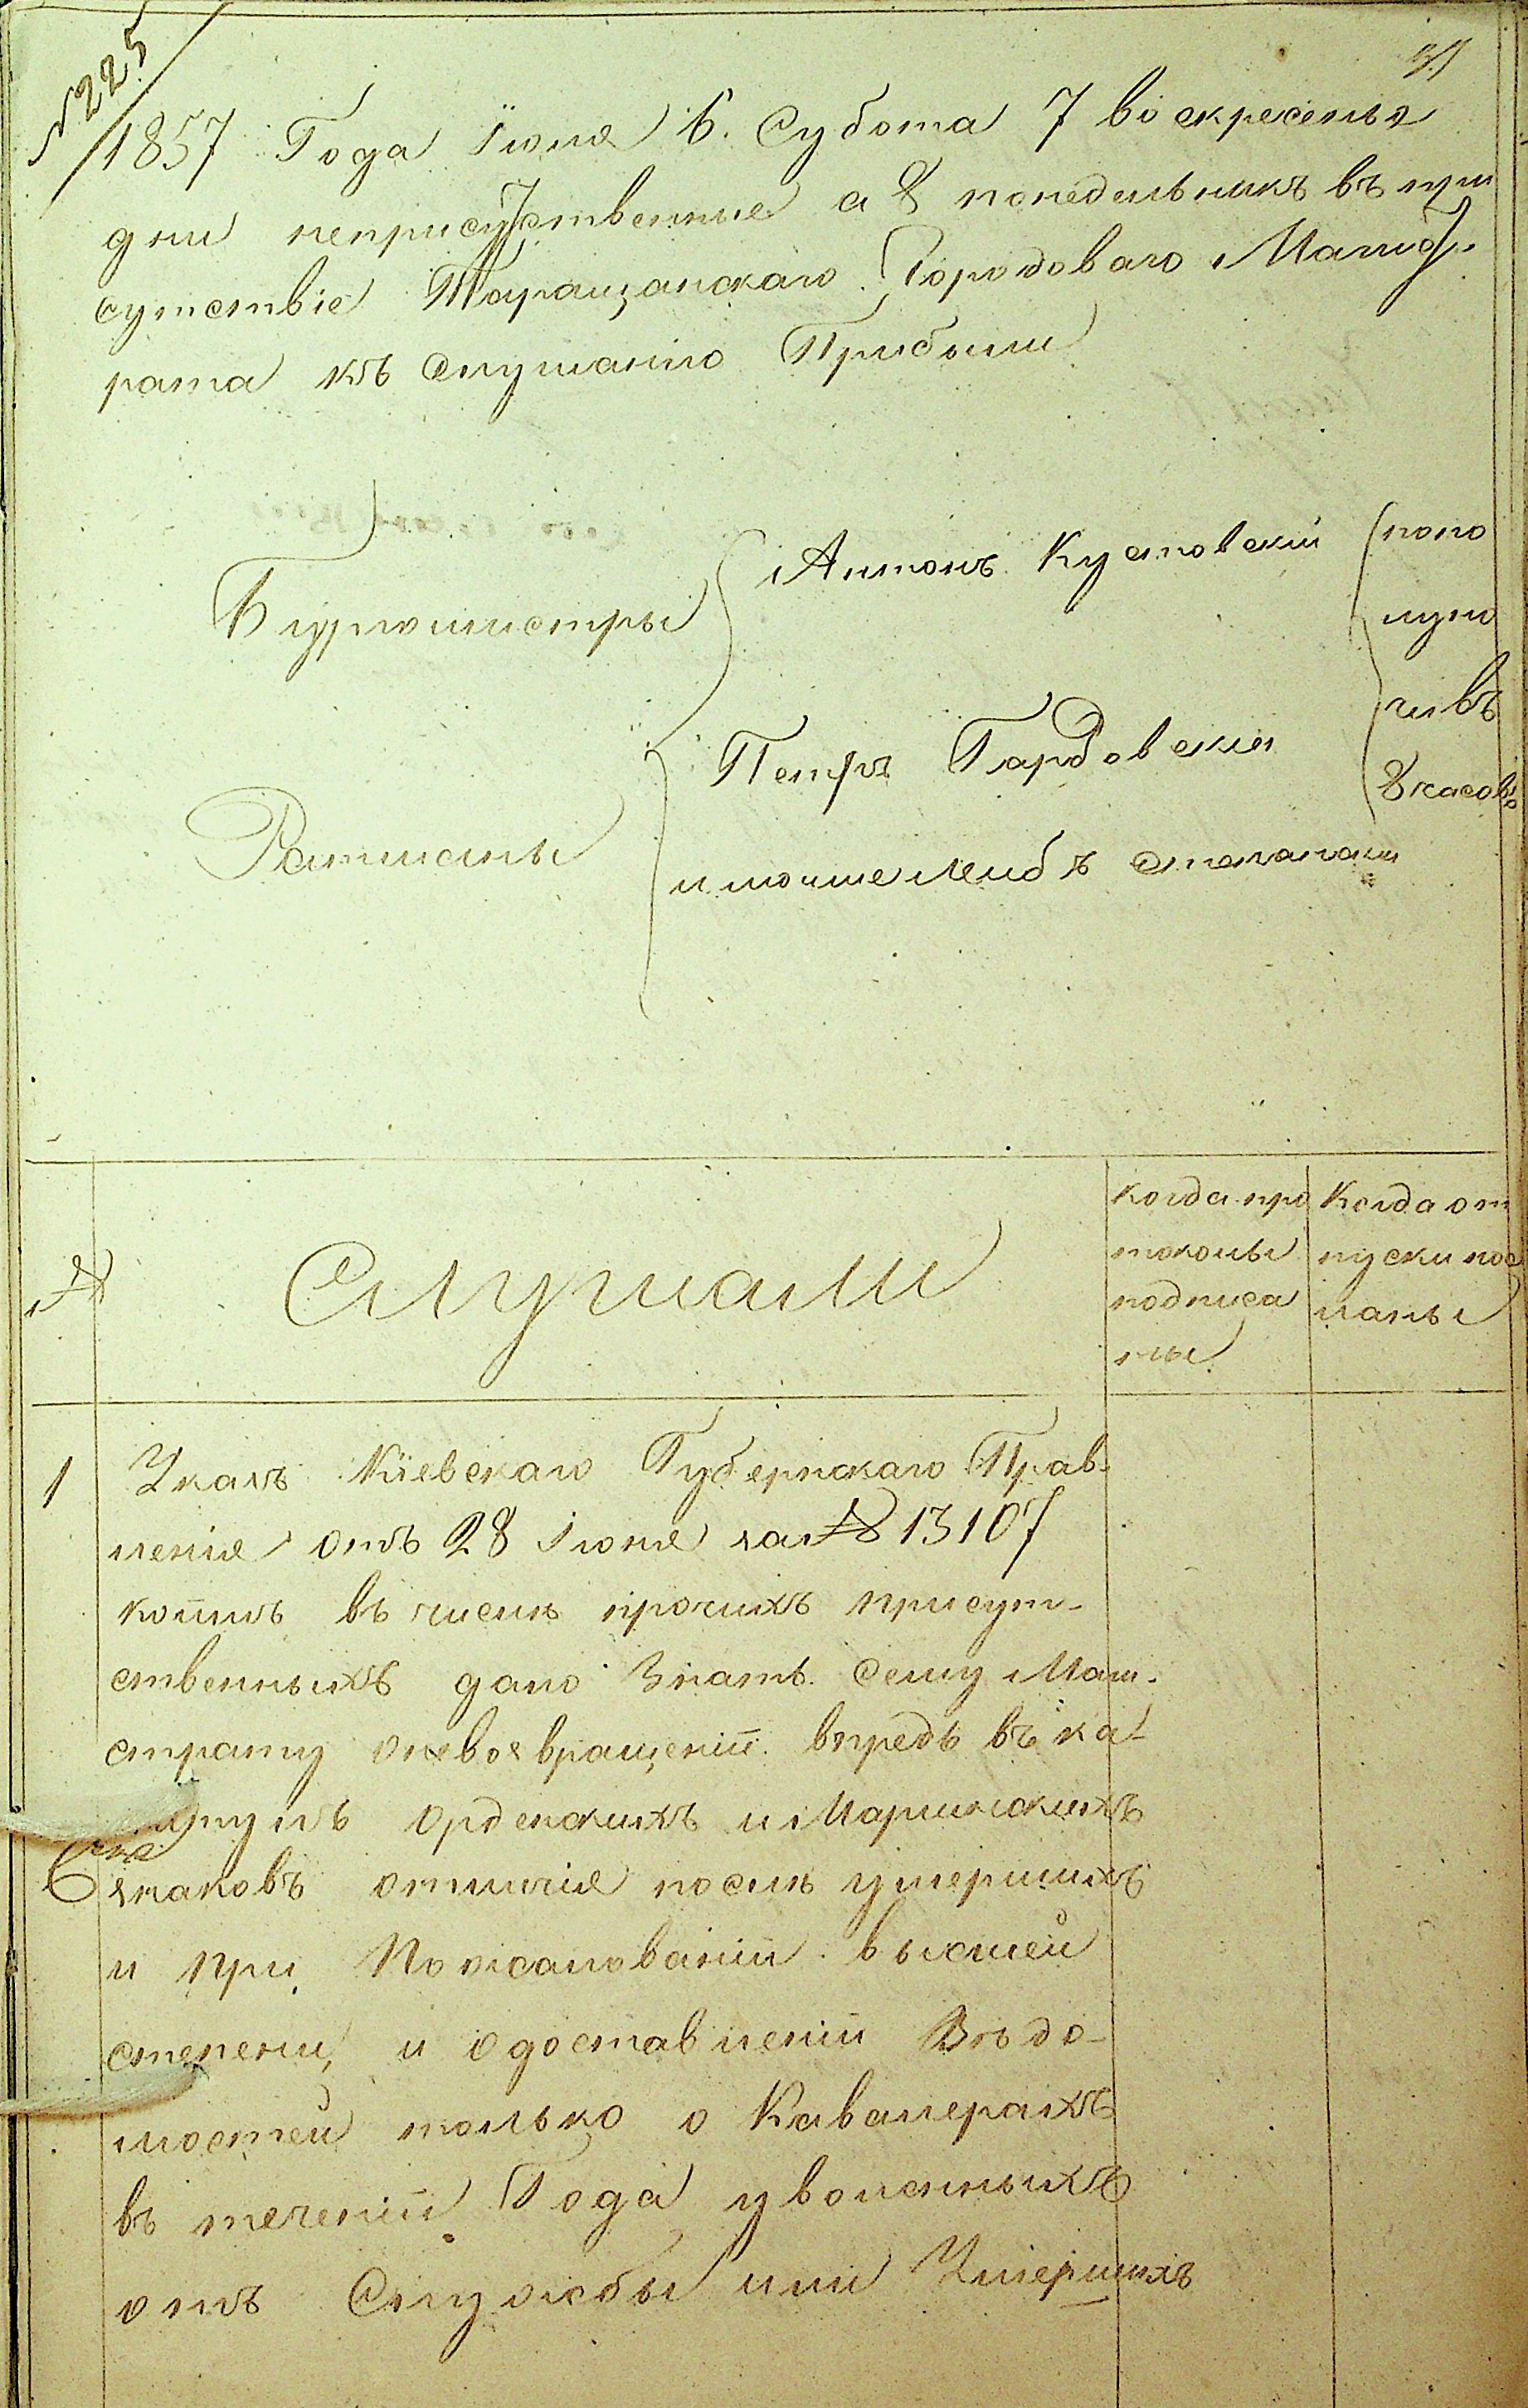 №225
1857 Года Іюля 6. Субота 7 воскресенья
дни неприсуствение а 8 понедельникъ въ при
суствіе Таращанскаго Городоваго Магист
рата къ слушанію Прибыли
Бургомистры
Антонъ Кустовскій
попо
луно
Петръ Гардовскій
чивъ
8 часовъ
Ратманы
и мошие лейбъ
№
Слушали
Когда про
токолы
подписа
ны
Когда от
пуски пос
ланы
1
Указъ Кіевскаго Губернскаго Прав-
ленія отъ 28 Іюня за № 13107
коимъ въ числѣ прочихъ присут-
ственныхъ дано Знать сему Маги-
страту о невозвращеніи впредь въ ка-
питулъ орденскихъ и Маріинскихъ
знаковъ отличія послѣ умершихъ
и при Пожалованіи высшей
степени, и одоставленіи Вѣдо-
мостей только о Кавалерахъ
въ теченіи Года уволенныхъ
отъ Службы или Умершихъ